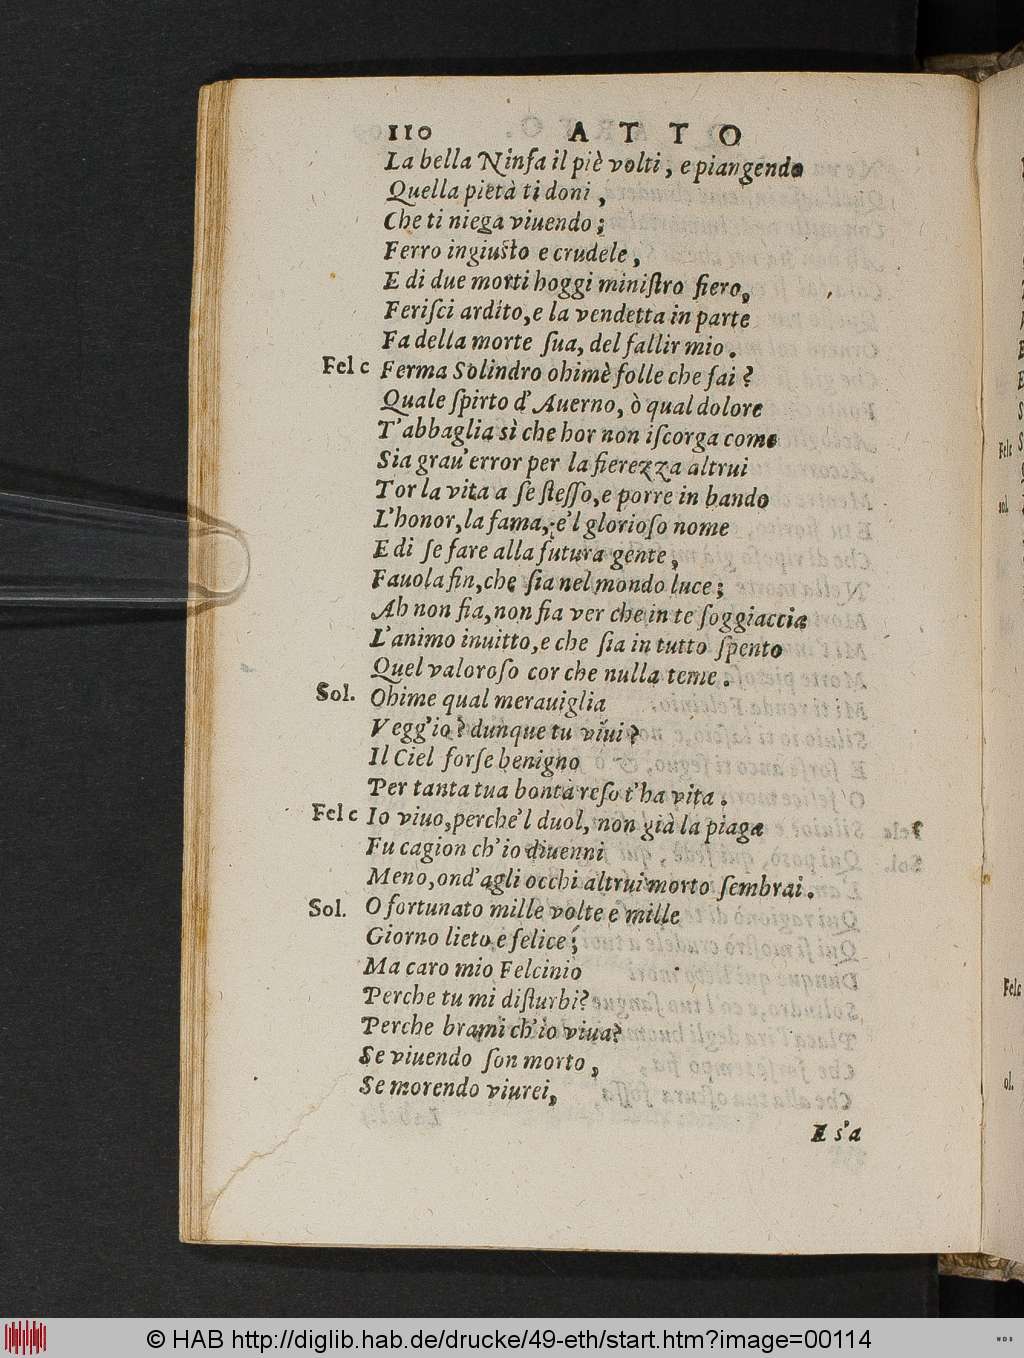 110 ATTO
La bella Ninfa il piè volti, e piangendo
Quella pietà ti doni,
Che ti niega viuendo;
Ferro ingiuſto e crudele,
E di due morti hoggi miniſtro fiero,
Feriſci ardito, e la vendetta in parte
Fa della morte ſua, del fallir mio.
Felc Ferma Solindro ohimè folle che fai?
Quale ſpirto d'Auerno, ò qual dolore
T'abbaglia sì che hor non iſcorga come
Sia grau'error per la fierezza altrui
Tor la vita a ſe ſteſſo, e porre in bando
L'honor, la fama, e'l glorioſo nome
E di ſe fare alla futura gente,
Fauola fin, che ſia nel mondo luce;
Ah non fia, non fia ver che in te ſoggiaccia
L'animo inuitto, e che ſia in tutto ſpento
Quel valoroſo cor che nulla teme.
Sol. Ohime qual merauiglia
Vegg'io? dunque tu viui?
Il Ciel forſe benigno
Per tanta tua bontà reſo t'ha vita.
Felc Io viuo, perche'l duol, non già la piaga
Fu cagion ch'io diuenni
Meno, ond'agli occhi altrui morto ſembrai.
Sol. O fortunato mille volte e mille
Giorno lieto e felice;
Ma caro mio Felcinio
Perche tu mi diſturbi?
Perche brami ch'io viua?
Se viuendo ſon morto,
Se morendo viurei,
E s'a
Felc
sol.
Felc
ol.
© HAB http://diglib.hab.de/drucke/49-eth/start.htm?image=00114